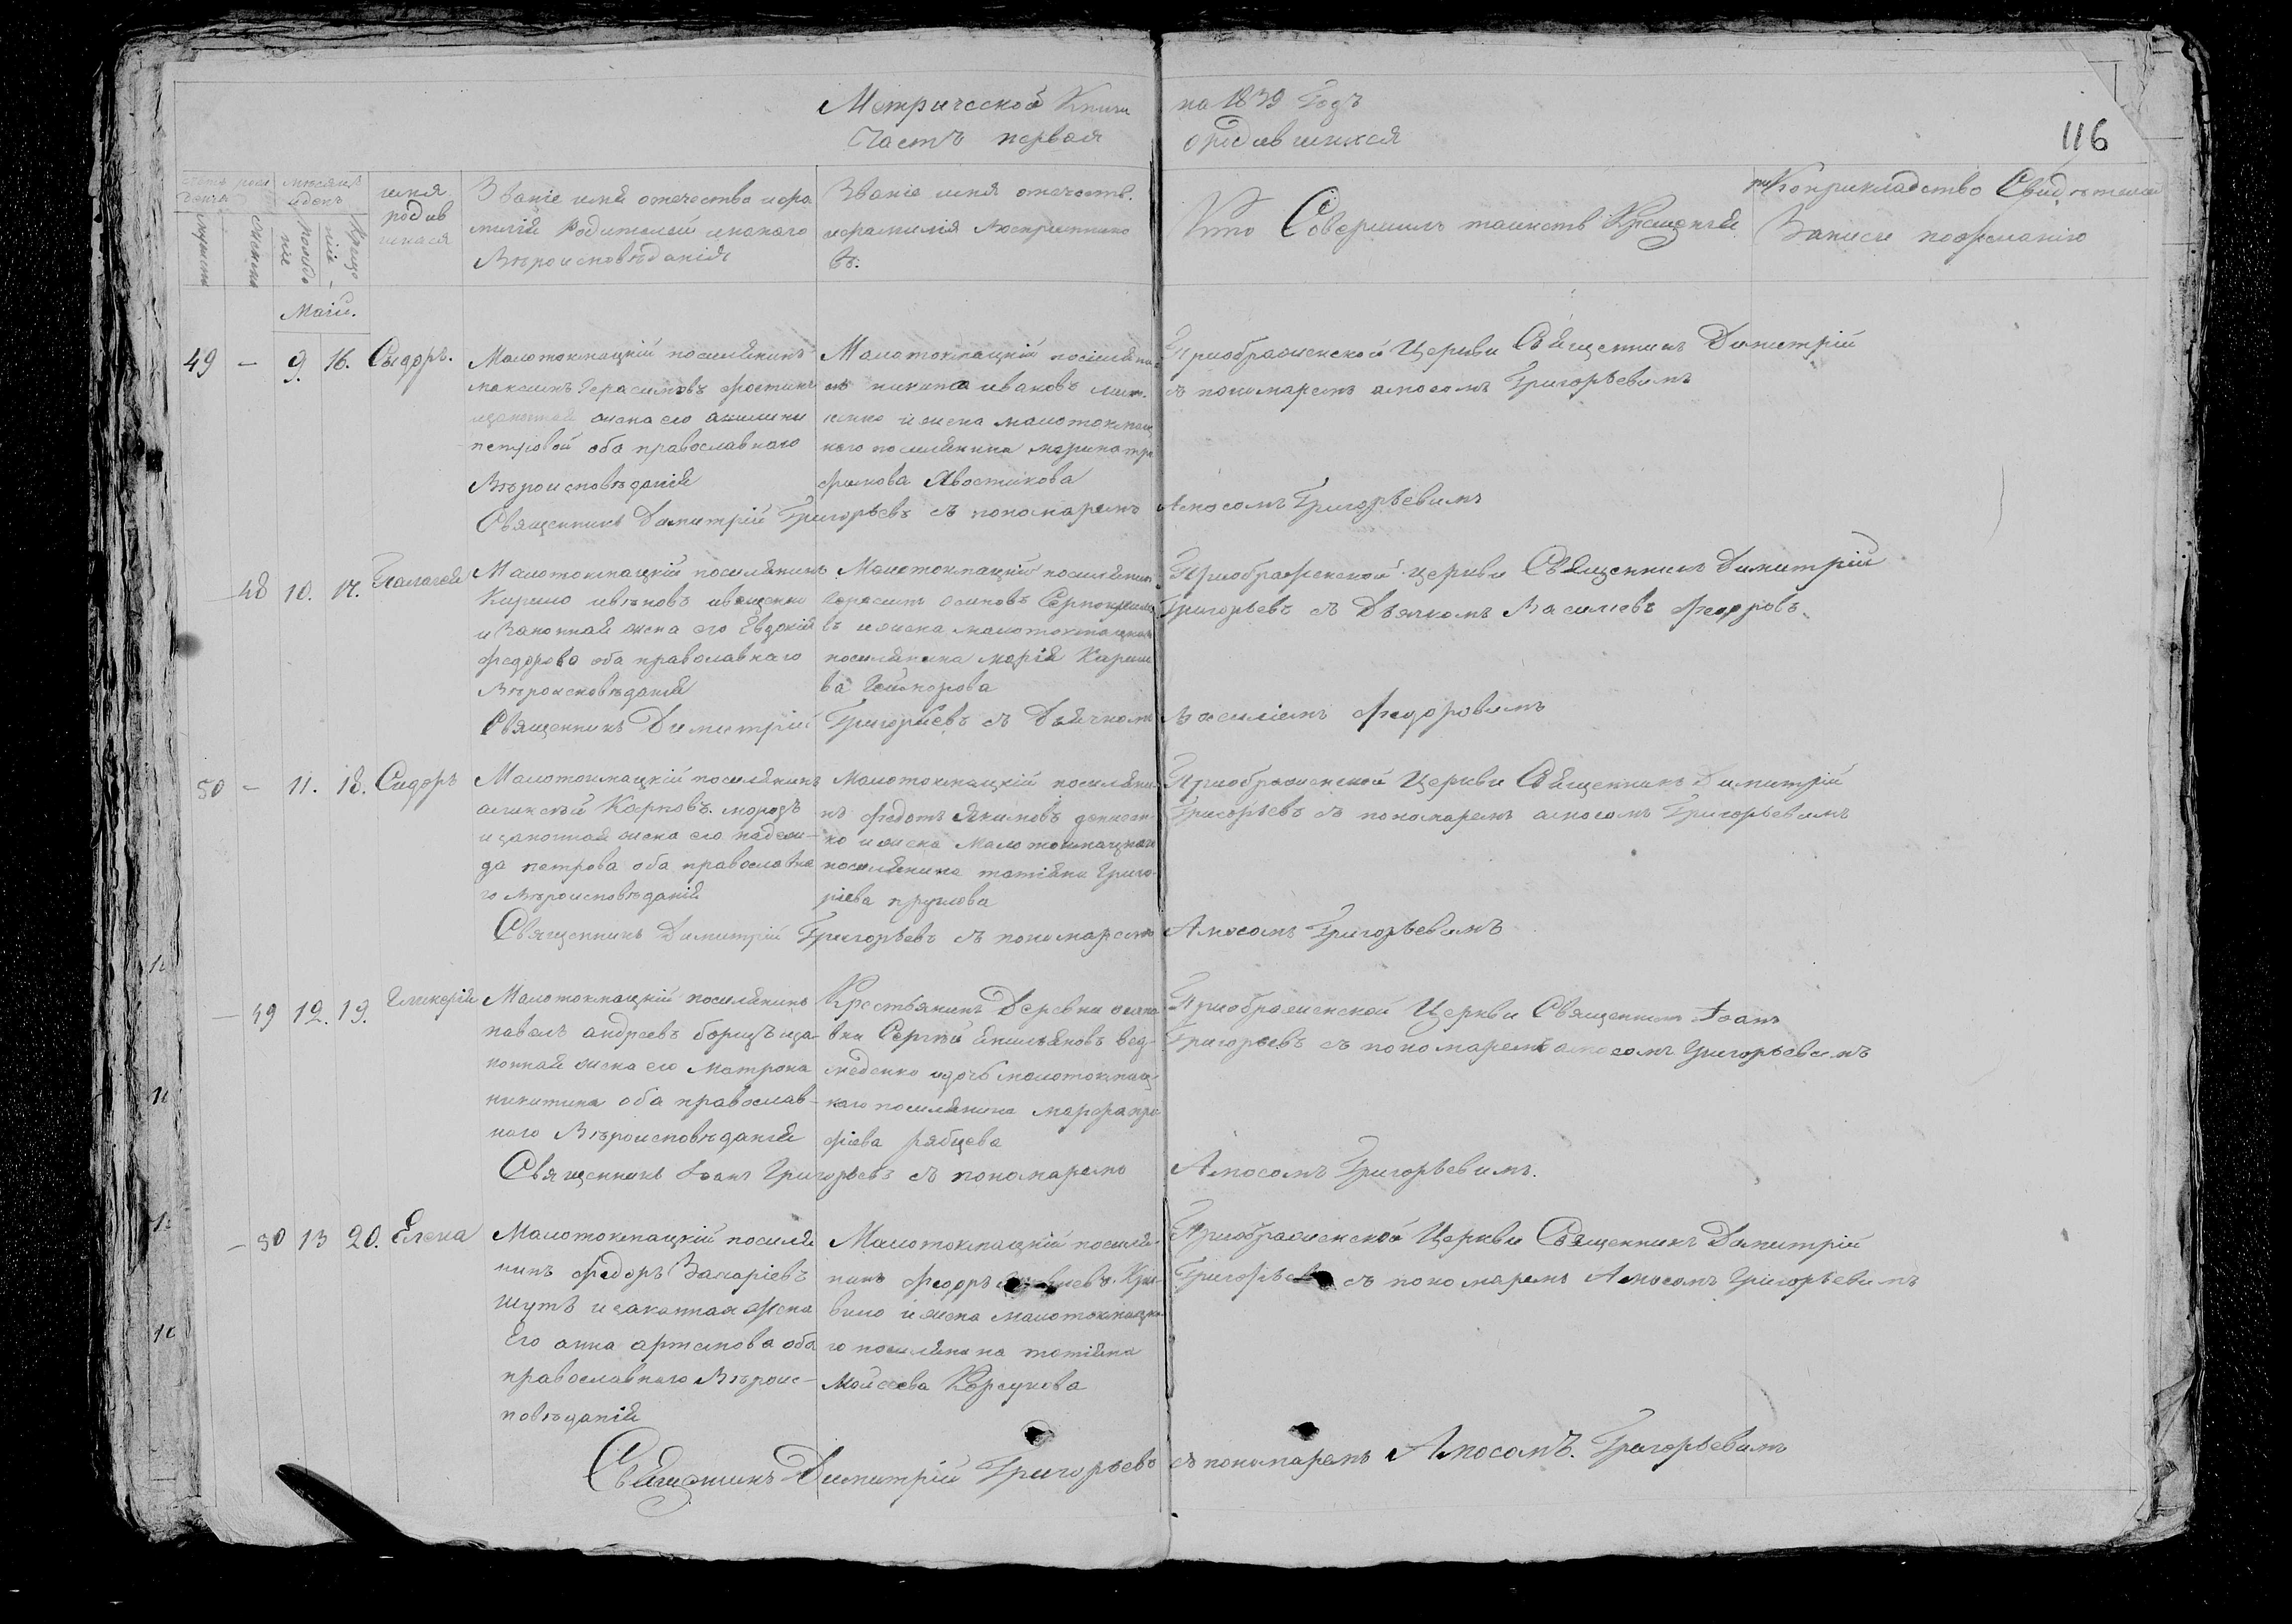 Метрической Книги на 1839 Годъ
Часть первая
о родившихся
116
мужеска
женска
мѣсяцъ
и день
рожде
ніе
Креще
ніе
имя
родив
шихся
Званіе имя отечество и фа
милій Родителей и какого
Вѣроисповѣданія
Званіе имя отечеств.
и фамилія Воспріемнико
въ.
Кто Совершилъ таинств Крещенія
рукоприкладство Свидѣтелей
Записи по желанію
Маій.
49 — 9. 16. Сидоръ.
Малотокмацкій поселянинъ
максимъ Герасимовъ
жена его акилина
петровой оба православнаго
Вѣроисповѣданій
Малотокмацкій поселяни
нъ никита ивановъ
и жена малотокмац
каго поселянина марина тро
фимова Хвостикова
Приображенской Церкви Священникъ Димитрій
съ пономаремъ амосомъ Григорьевимъ
Священникъ Димитрій Григорьевъ съ пономаремъ Амосомъ Григорьевимъ
— 48 10. 17. Палагея
Малотокмацкій поселянинъ
Кирило ивановъ иващенко
и Законная жена его Евдокія
федорова оба православнаго
Вѣроисповѣданій
Малотокмацкій поселянин
Герасимъ осиповъ
и жена малотокмацкаго
поселянина марія Карпо
ва
Приображенской церкви Священникъ Димитрій
Григорьевъ съ Дьячкомъ Василіевъ Федоровъ
Священникъ Димитрій Григорьевъ съ Дьячкомъ василіемъ Федоровимъ
50 — 11. 18. Сидоръ
Малотокмацкій поселянинъ
алексѣй Карповъ морозъ
и законная жена его надеж-
да петрова оба православна
го Вѣроисповѣданій
малотокмацкій поселяни
нъ федотъ Якимовъ
ко и жена Малотокмацкаго
поселянина татіяна Григо
ріева круглова
Приображенской Церкви Священникъ Димитрій
Григорьевъ съ пономаремъ амосомъ Григорьевимъ
Священникъ Димитрій Григорьевъ съ пономаремъ Амосомъ Григорьевимъ
— 49 12. 19. Гликерія
Малотокмацкій поселянинъ
павелъ андреевъ борщъ и за-
конная жена его Матрона
никитина оба православ-
наго Вѣроисповѣданій
Крестьянинъ Деревни
вки Сергѣй Емильяновъ вед-
меденко и дочь малотокмац
каго поселянина марфа про
фіева рябцева
Приображенской Церкви Священникъ Іоанъ
Григорьевъ съ пономаремъ амосомъ Григорьевимъ
Священникъ Іоанъ Григорьевъ съ пономаремъ Амосомъ Григорьевимъ.
— 50 13 20. Елена
Малотокмацкій поселя
нинъ Федоръ Захаріевъ
шутъ и законная жена
Его анна артемова оба
православнаго Вѣроис-
повѣданій
Малотокмацкій поселя-
нинъ Феодоръ
и жена малотокмацка
го поселянина татіяна
Моисеева Корсунова
Приображенской Церкви Священникъ Димитрій
Григорьевъ съ пономаремъ Амосомъ Григорьевимъ
Священникъ Димитрій Григорьевъ съ пономаремъ Амосомъ. Григорьевимъ